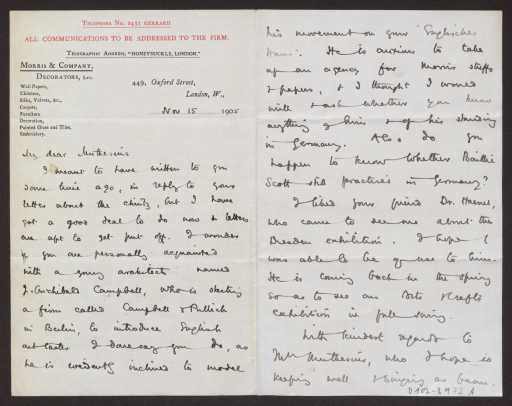 TELEPHONE No. 2431 GERRARD
ALL COMMUNICATIONS TO BE ADDRESSED TO THE FIRM.
TELEGRAPHIC ADDRESS, "HONEYSUCKLE, LONDON."
MORRIS & COMPANY,
DECORATORS, LTD.
Wall Papers,
Chintzes,
Silks, Velvets, &c.,
Carpets,
Furniture
Decoration,
Painted Glass and Tiles,
Embroidery.
449, Oxford Street,
London, W.,
Nov 15 1905
My dear Muthesius
I meant to have written to you
some time ago, in reply to your
letter about the chintz, but I have
got a good deal to do now & letters
are apt to get put off. I wonder
if you are personally acquainted
with a young architect named
J. Archibald Campbell, who is starting
a firm called Campbell & Pullich
in Berlin, to introduce English
I daresay you do, as
he is evidently inclined to model
his movement on your "Englisches
Haus". He is anxious to take
up an agency for Morris stuffs
& papers, & I thought I would
write & ask whether you know
anything of him & of his standing
in Germany. Also do you
happen to know whether Baillie
Scott still practises in Germany?
I liked your friend Dr.
who came to see me about the
Dresden exhibition. I hope I
was able to be of use to him.
He is coming back in the spring
so as to see our Arts & Crafts
exhibition in full swing.
With kindest regards to
Mrs Muthesius, who I hope is
keeping well & singing as